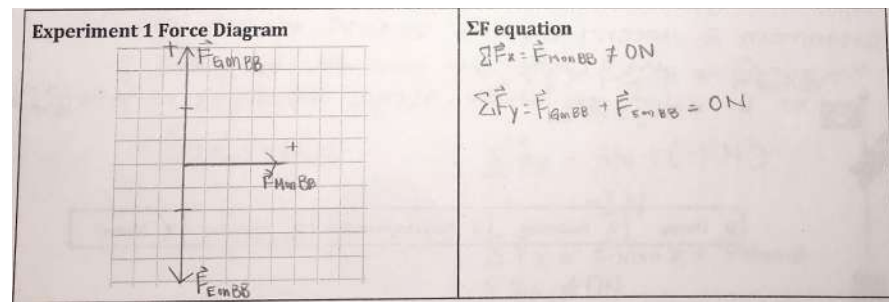 Experiment 1 Force Diagram
+
F⃗ G on BB
+
F⃗ M on BB
F⃗ E on BB
ΣF equation
ΣF⃗x = F⃗ M on BB ≠ 0N
ΣF⃗y = F⃗ G on BB + F⃗ E on BB = 0N